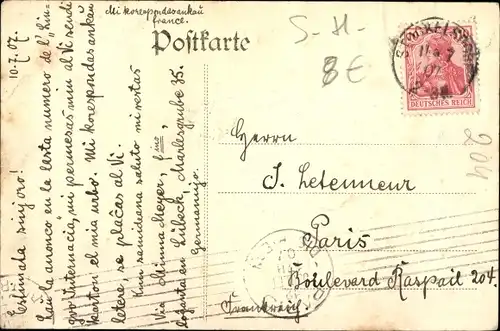 Mi korespondas ankaŭ
france.
Postkarte
S.-H.
8 €
10-7.07.
Estimata sinjoro!
Laŭ la anonco en la lasta numero de l' „Lin-
gvo Internacia", mi permesas min al Vi sendi
karton el mia urbo. Mi korespondas ankaŭ
letere se plaĉas al Vi.
Kun samideana saluto mi restas
Via Minna Meyer, fino
loĝanta en Lübeck, Marlesgrube 35.
Germanujo.
DEUTSCHES REICH
Herrn
J. Letenneur
Paris
Boulevard Raspail 204.
Frankreich.
204